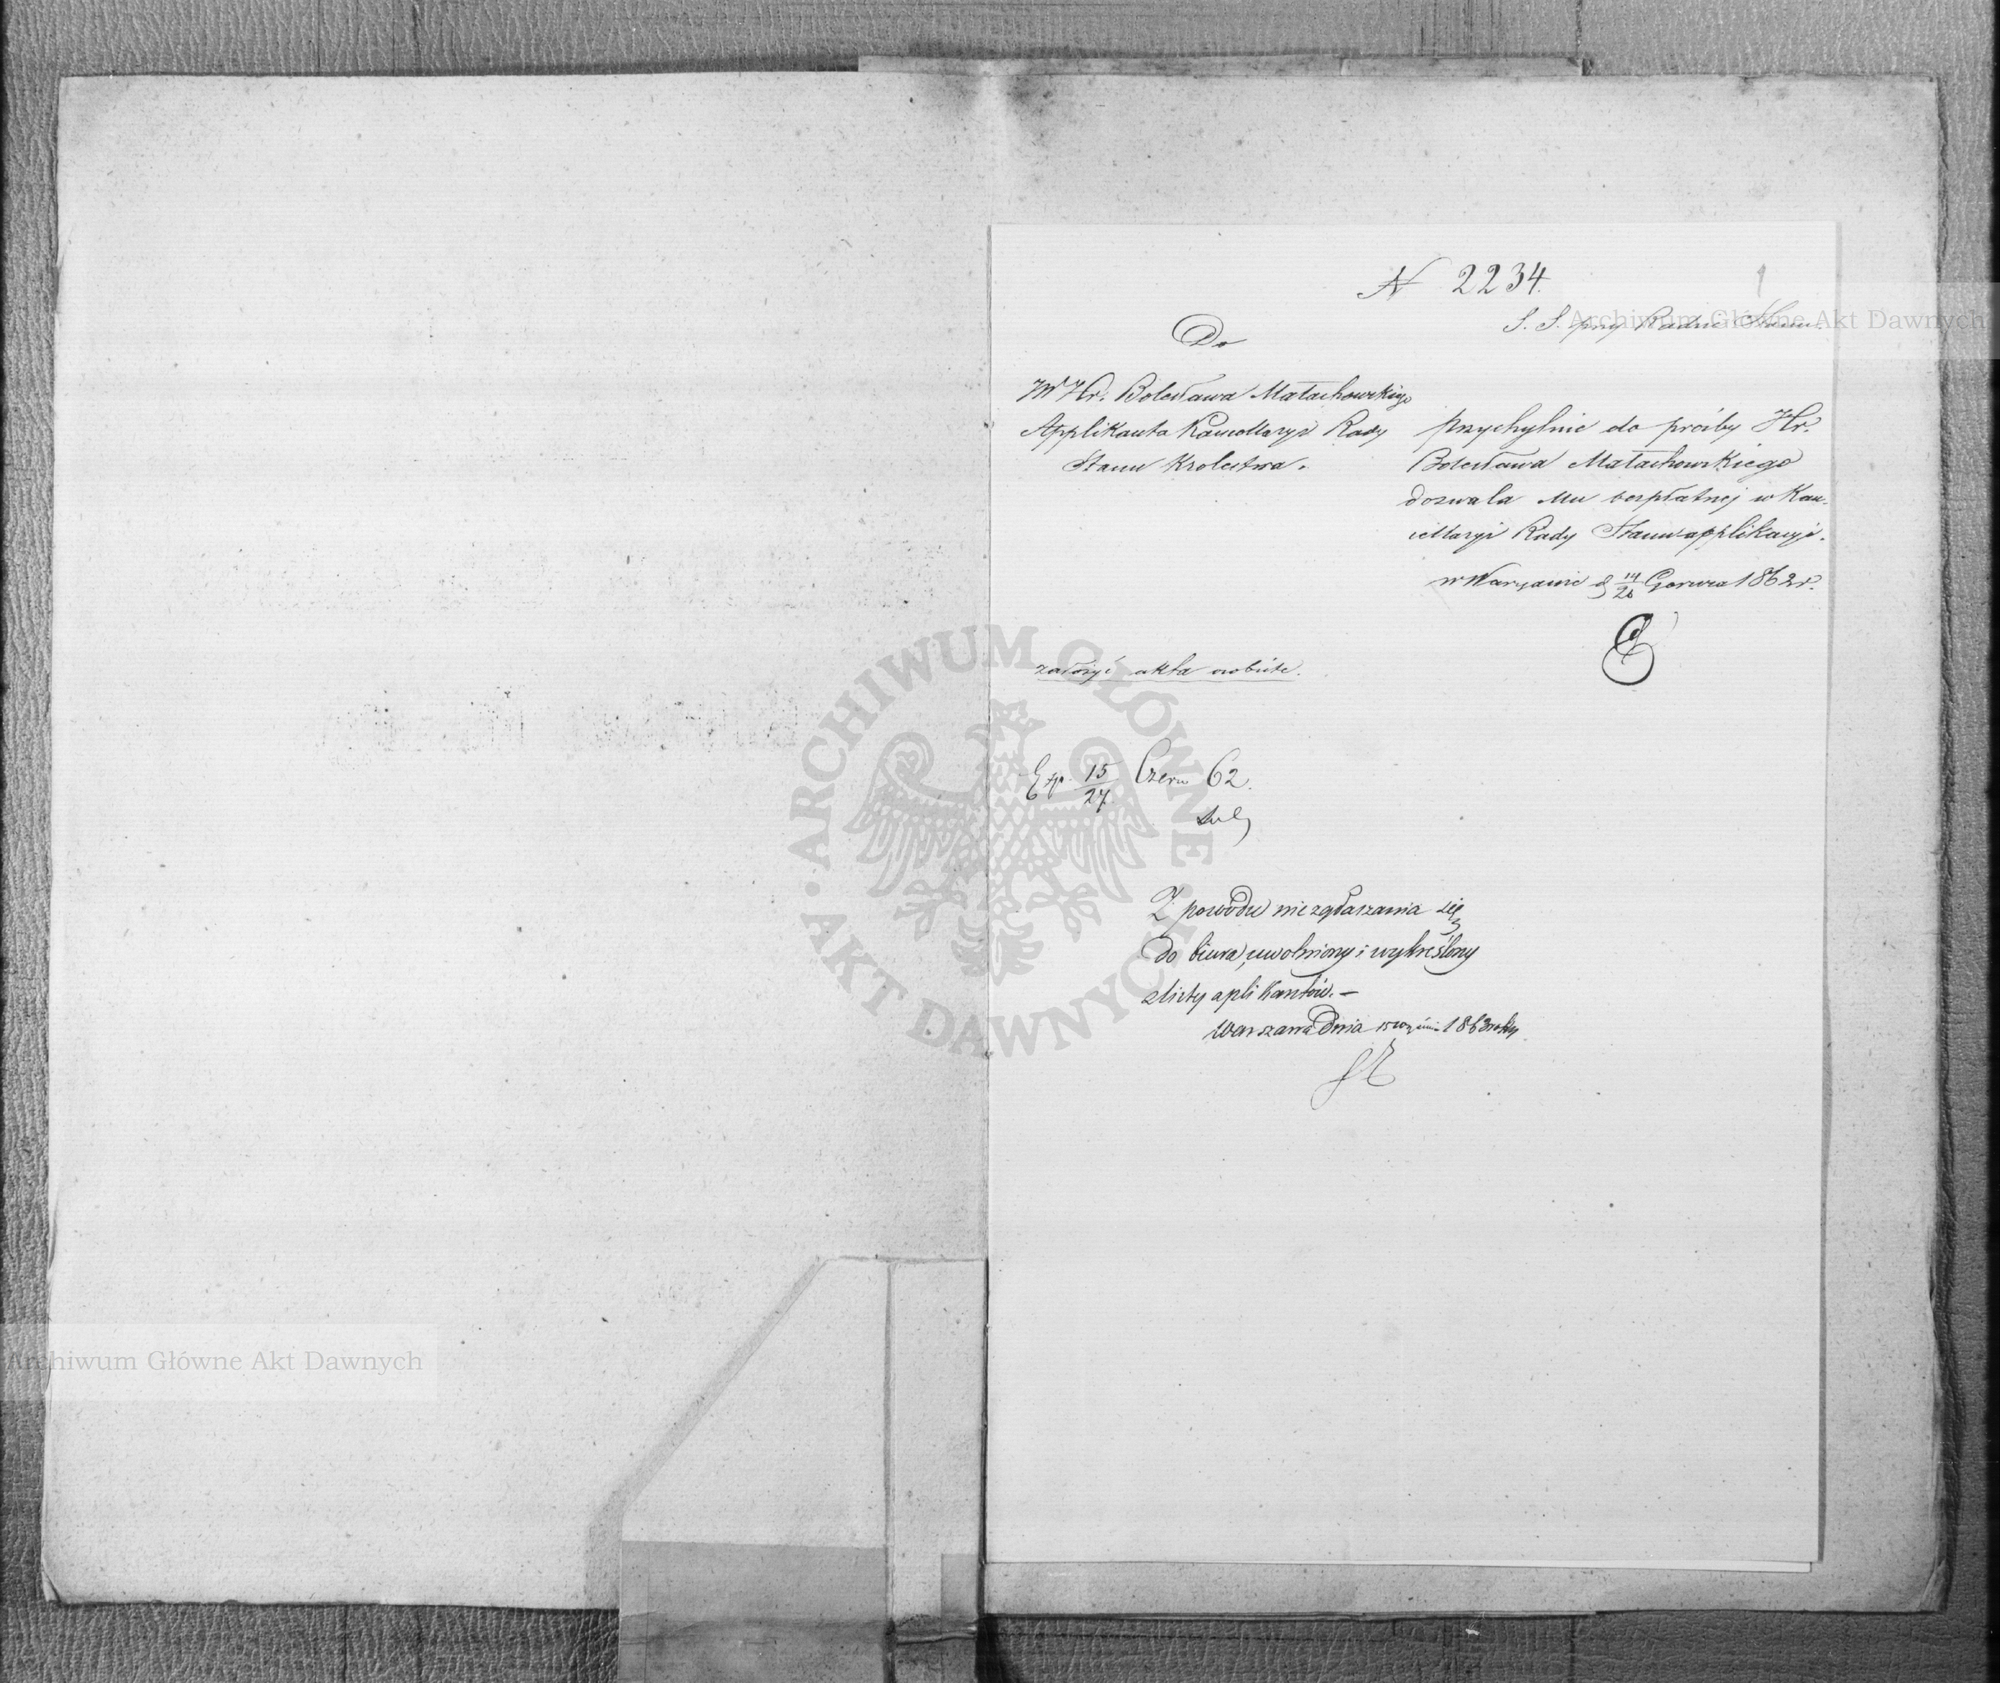 N 2234.
1
S. S. przy Radzie Stanu.
Do
W Hr. Bolesława Małachowskiego
Applikanta Kancellaryi Rady
Stanu Krolestwa.
przychylnie do prośby Hr.
Bolesława Małachowskiego
dozwala Mu bezpłatnej w Kan-
cellaryi Rady Stanu applikacyi.
w Warszawie d 14/26 Czerwca 1862 r.
założyć akta osobiste.
Exp. 15/27 Czerw 62.
Z powodu niezgłaszania się
do biura, uwolniony i wykreślony
z listy aplikantów. –
Warszawa Dnia 15 września 1863 roku
Archiwum Główne Akt Dawnych
ARCHIWUM GŁÓWNE AKT DAWNYCH
Archiwum Główne Akt Dawnych